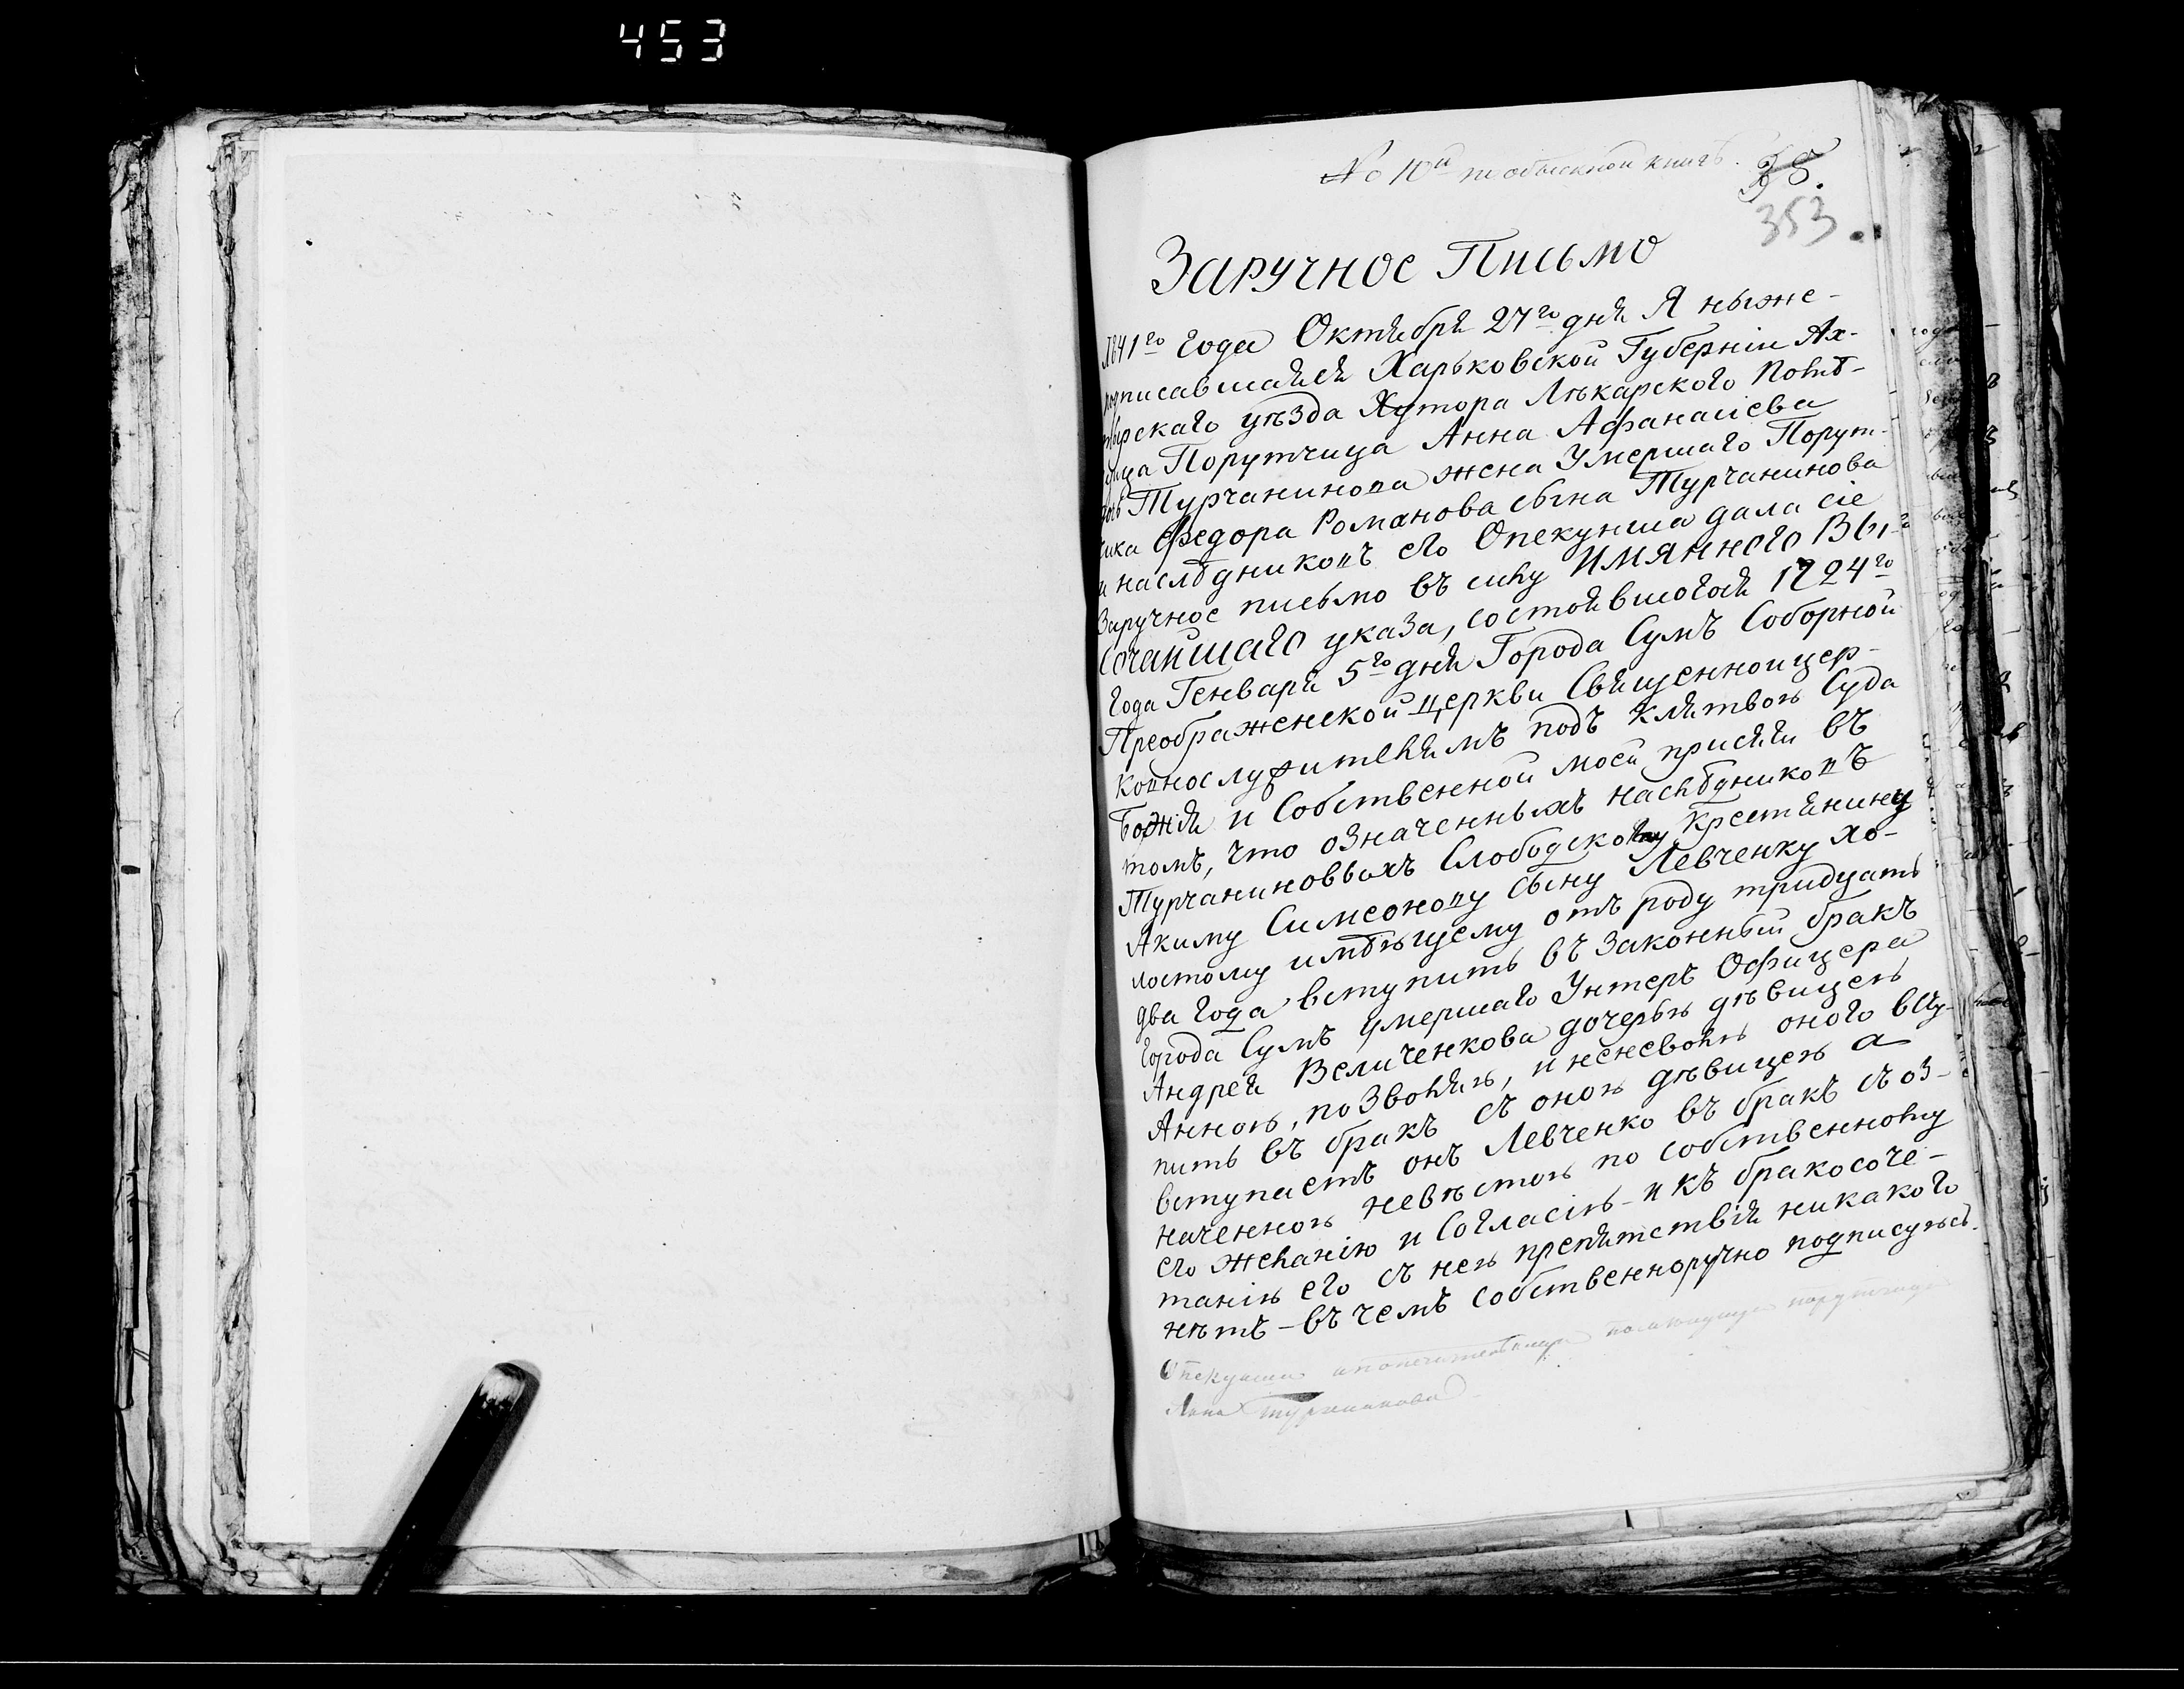 453
№ 10й по обыскной книгѣ. 38.
353
Заручное Письмо
1841го года Октября 27го дня Я ниже-
подписавшаяся Харьковской Губерніи Ах-
тырскаго уѣзда Хутора Лѣкарского Помѣ-
щица Порутчица Анна Афанасіева
дочь Турчанинова жена Умершаго Порут-
чика Федора Романова сына Турчанинова
и наслѣдниковъ его Опекунша дала сіе
Заручное письмо въ силу ИМЯННОГО ВЫ-
СОЧАЙШАГО указа, состоявшогося 1724го
года Генваря 5го дня Города Сумъ Соборной
Преображенской церкви Священноцер-
ковнослужителямъ подъ клятвою Суда
Божія и Собственной моей присяги въ
томъ, что означенныхъ наслѣдниковъ
Турчаниновыхъ Слободско Крестянину
Акиму Симеонову сыну Левченку хо-
лостому имѣющему отъ роду тридцать
два года вступить въ Законный бракъ
города Сумъ умершаго Унтеръ Офицера
Андрея Величенкова дочерью дѣвицею
Анною, позволяю, и неневолю оного всту-
пить въ бракъ съ оною дѣвицею а
вступаетъ онъ Левченко въ бракъ съ оз-
наченною невѣстою по собственному
его желанію и Согласію - и къ бракосоче-
танію его съ нею препятствія никакого
нѣтъ - въ чемъ собственноручно подписуюсь.
Опекунша и попечительница помѣщица порутчица
Анна Турчанинова